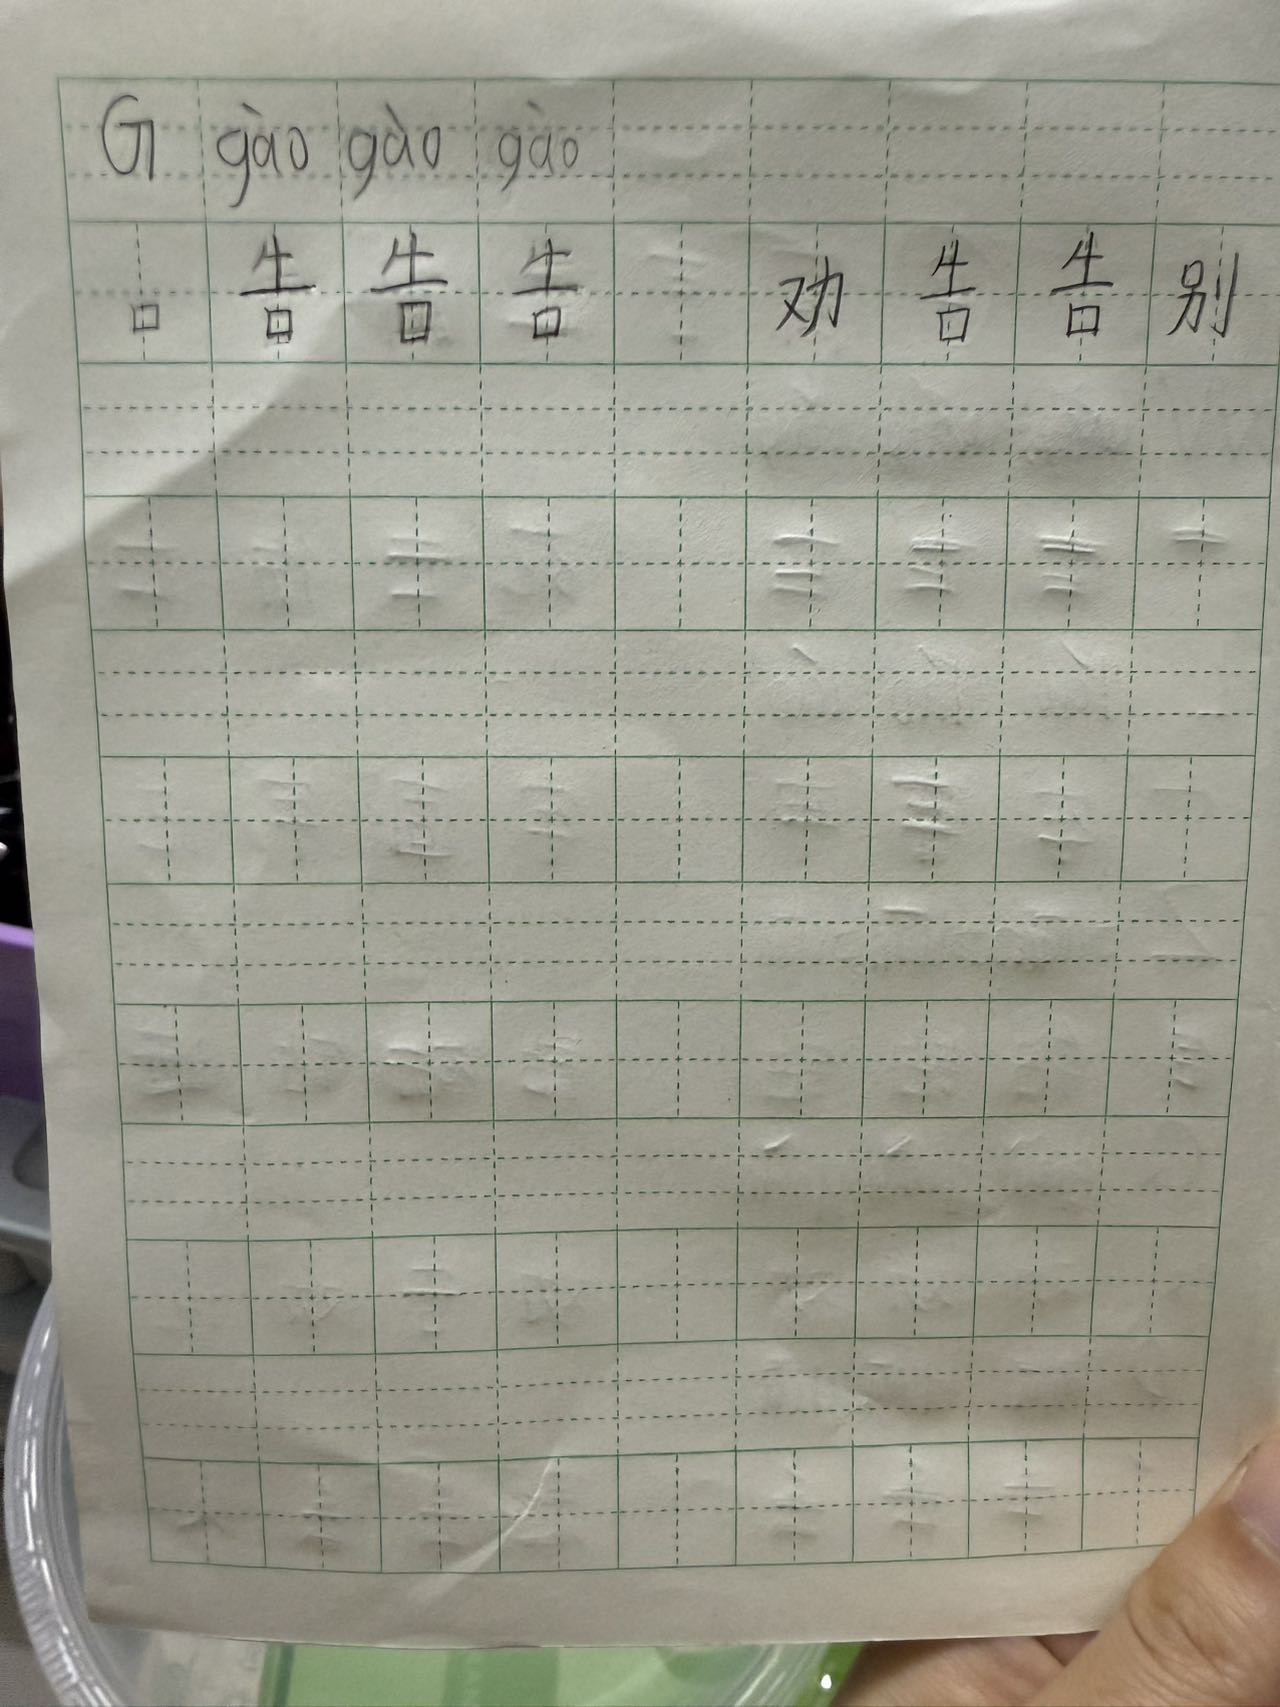 G gào gào gào
口 告 告 告 劝 告 告 别